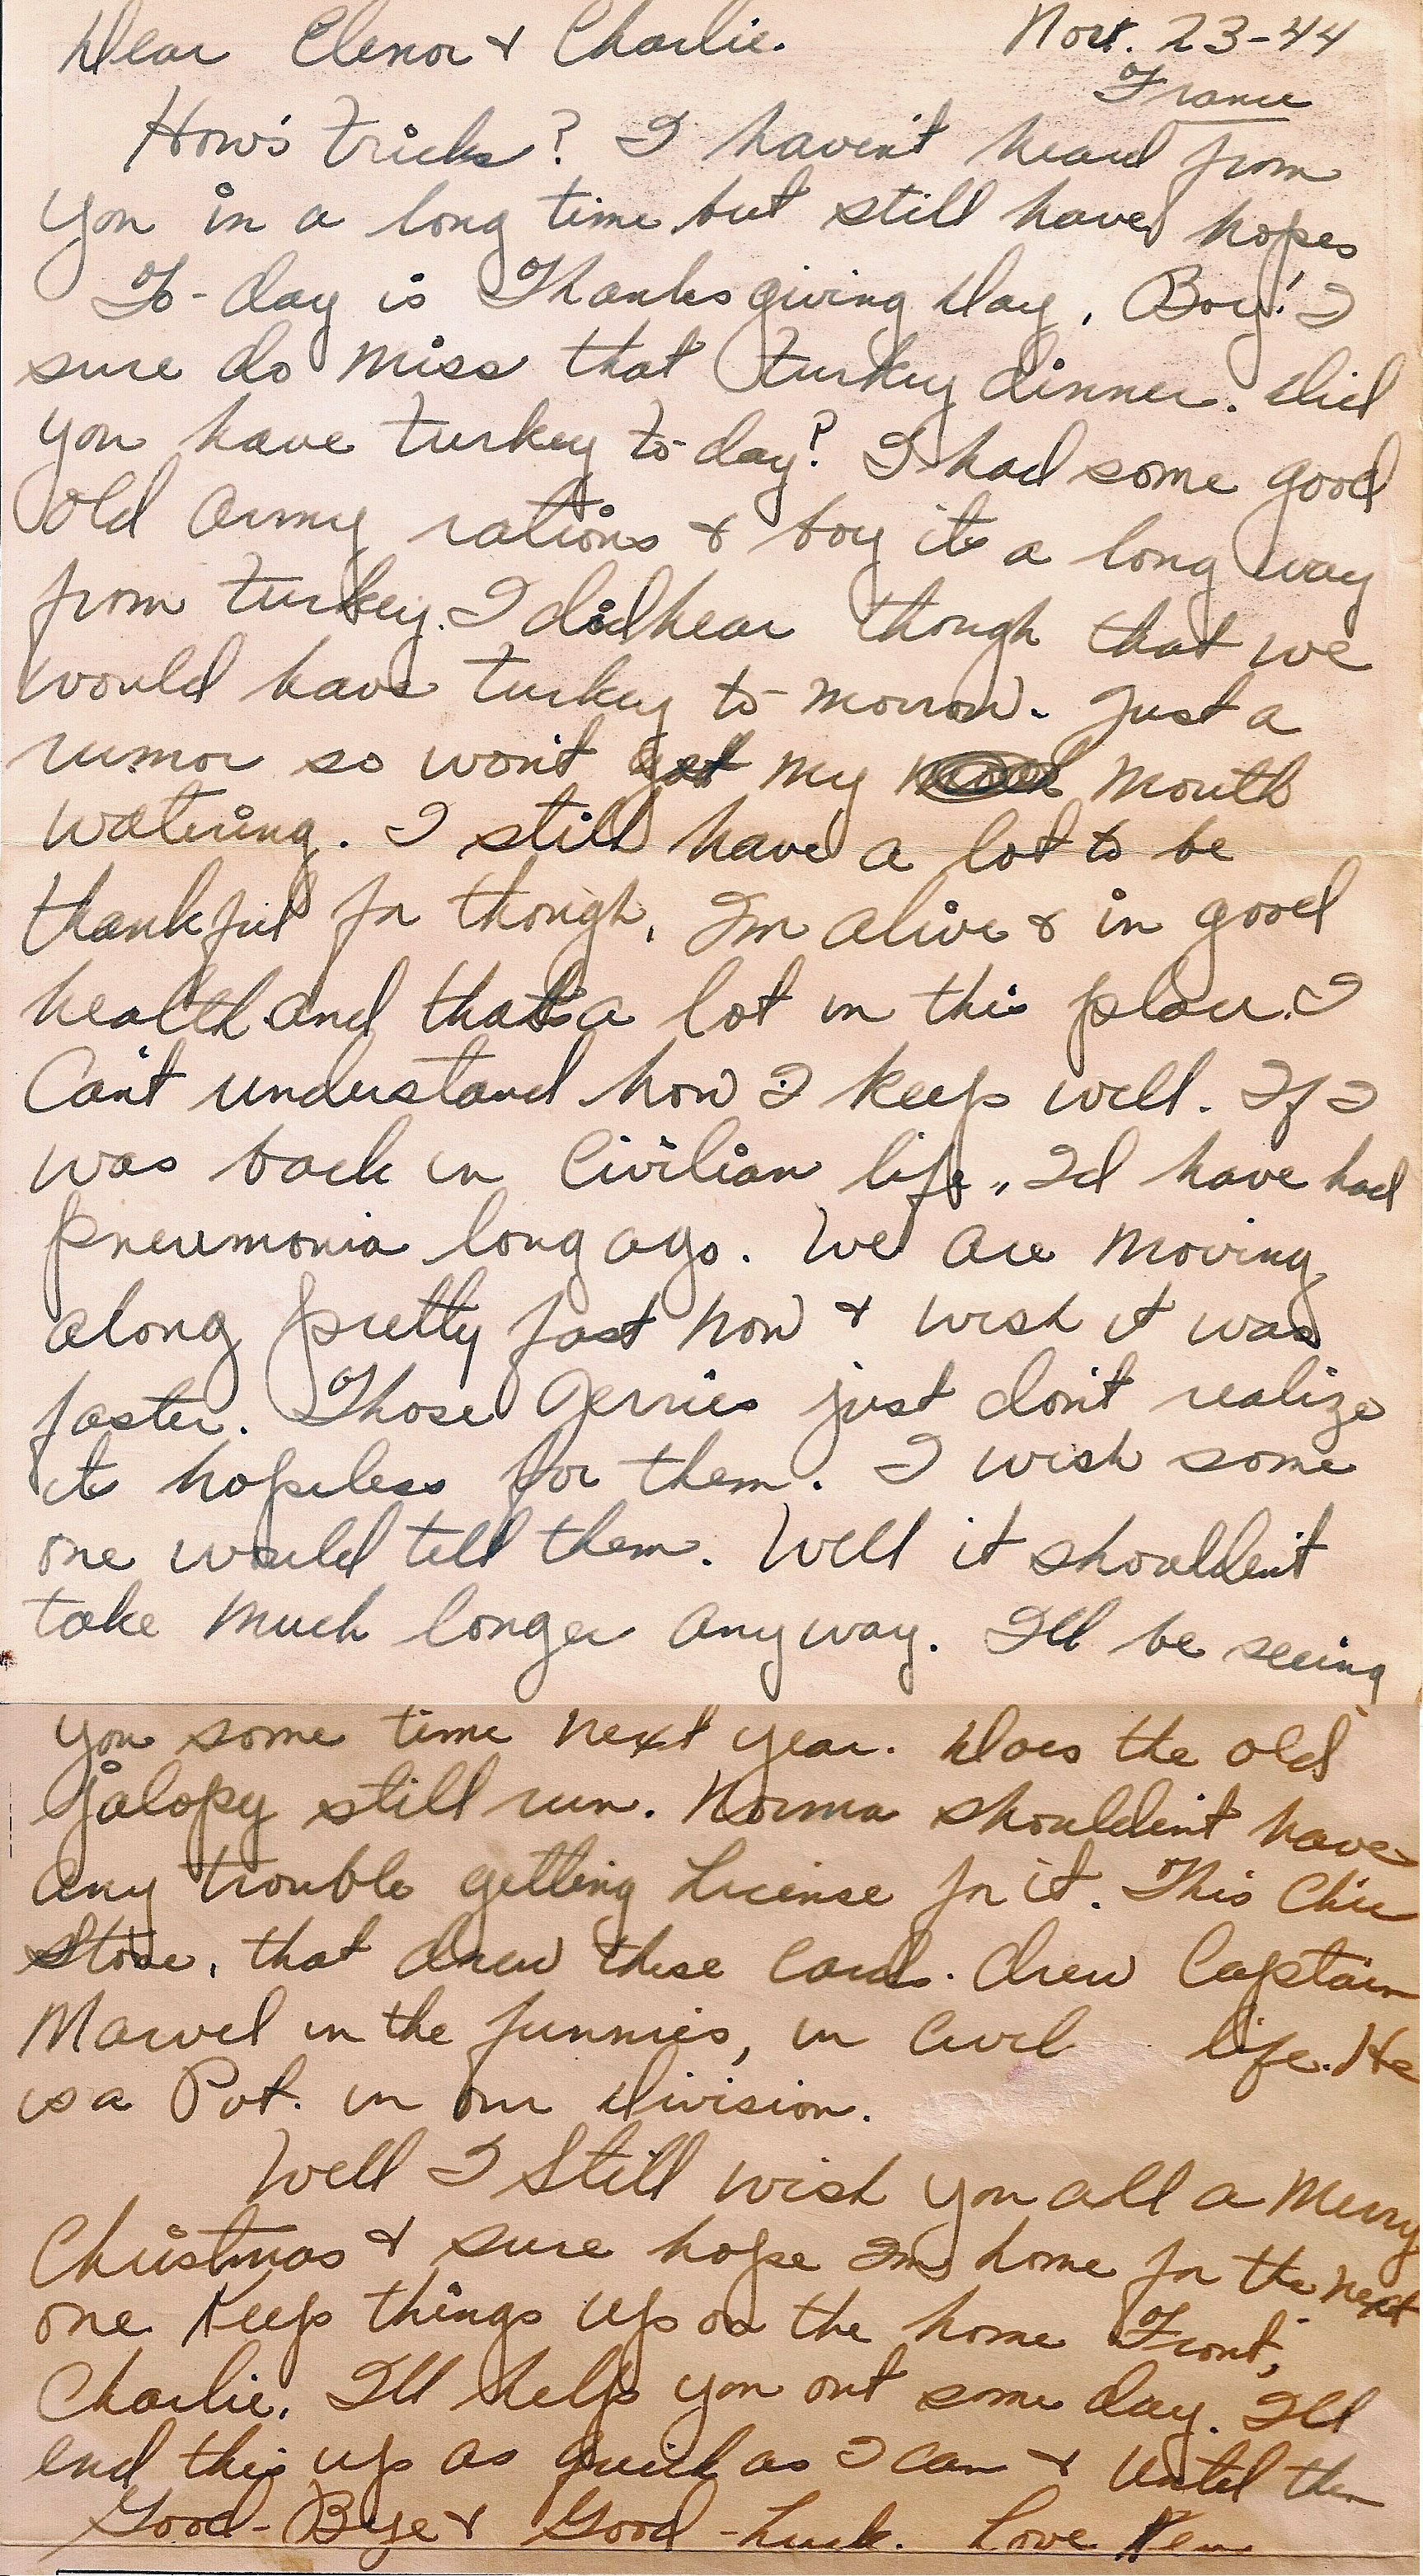 Dear Elenor & Charlie. Nov. 23-44
France
How's tricks? I haven't heard from
you in a long time but still have hopes
To-day is Thanksgiving Day. Boy! I
sure do miss that turkey dinner. Did
you have turkey to-day? I had some good
old army rations & boy its a long way
from turkey. I did hear though that we
would have turkey to-morrow. Just a
rumor so won't get my mouth
watering. I still have a lot to be
thankful for though, I'm alive & in good
health and that's a lot in this place. I
Can't understand how I keep well. If I
was back in Civilian life, I'd have had
pneumonia long ago. We are moving
along pretty fast now & wish it was
faster. Those Jerries just don't realize
its hopeless for them. I wish some
one would tell them. Well it shouldent
take much longer anyway. I'll be seeing
you some time next year. Does the old
jalopy still run. Norma shouldent have
any trouble getting License for it. This Chic
Stone, that drew these cards. drew Captain
Marvel in the funnies, in Civil life. He
is a Pvt. in our division.
Well I Still wish you all a Merry
Christmas & sure hope I'm home for the next
one. Keep things up on the home Front,
Charlie. I'll help you out some day. I'll
end this up as quick as I can & Until then
Good-Bye & Good-Luck. Love Ken